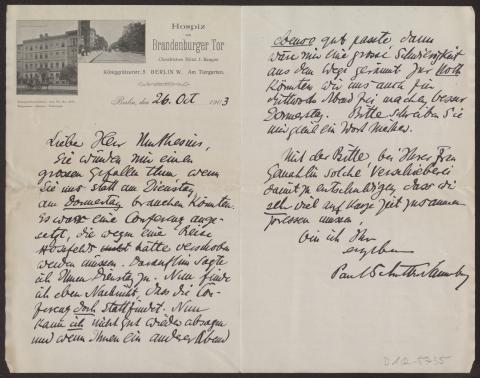 Hospiz
am
Brandenburger Tor
Christliches Hôtel I. Ranges
Königgrätzerstr. 5 BERLIN W. Am Tiergarten.
Berlin, den 26. Oct 1903
Lieber Herr Muthesius,
Sie würden mir einen
grossen Gefallen thun, wenn
Sie uns statt am Dienstag
am Donnerstag brauchen könnten.
Es war eine Conferenz ange-
setzt, die wegen eine Reise
hatte verschoben
werden müssen. Daraufhin sagte
ich Ihnen Dienstag zu. Nun finde
ich eben Nachricht, dass die Con-
ferenz doch stattfindet. Nun
kann ich nicht gut wieder absagen
und wenn Ihnen ein anderer Abend
ebenso gut passte dann
wäre mir eine grosse Schwierigkeit
aus dem Wege geräumt. Zur Noth
könnten wir uns auch für
Mittwoch Abend frei machen, besser
Donnerstag. Bitte schreiben Sie
mir gleich ein Wort
Mit der Bitte bei Ihrer Frau
Gemahlin solche Verschieberei
damit zu entschuldigen dass wir
sehr viel auf kurze Zeit zusammen
pressen müssen,
bin ich Ihr
ergebener
Paul Schultze-Naumburg